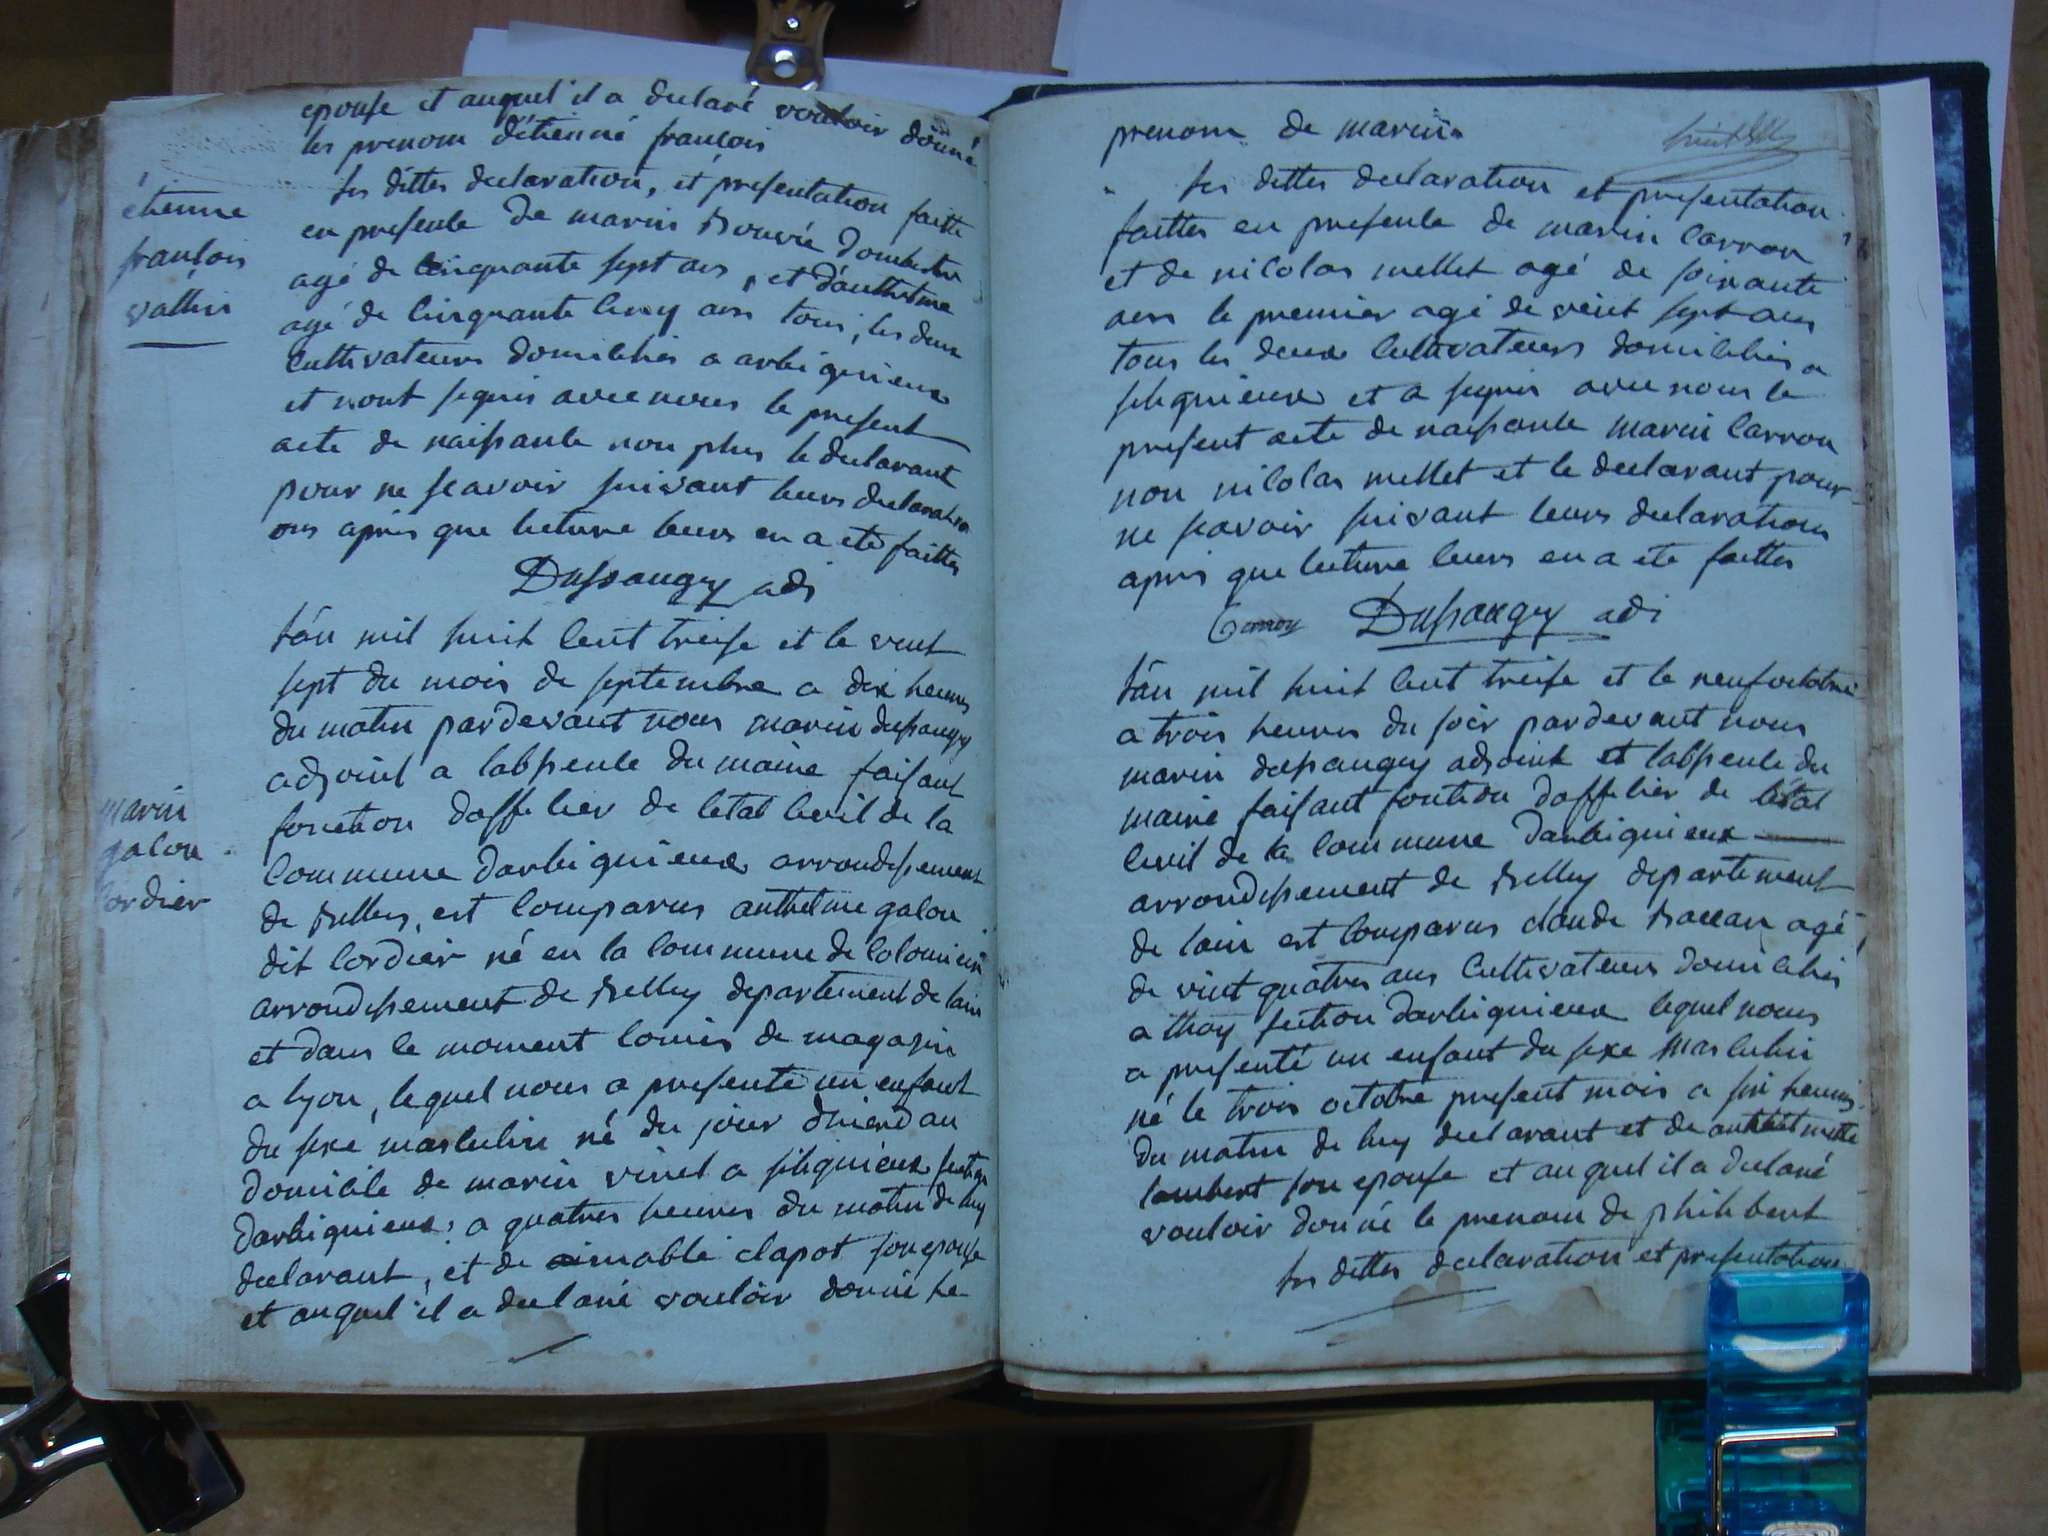 epouse et auquel il a declaré vouloir donné
les prenom détienné francois
les dittes declaration, et presentation faitte
en presence de marin
agé de cinquante sept ans, et d'anthelme
agé de cinquante cinq ans tous les deux
cultivateurs domicilies a arbignieux
et nont signés avec nous le present
acte de naissance non plus le declarant
pour ne scavoir suivant leurs declarati
ons apres que lecture leurs en a eté faittes
Dussaugey adj
étienne
francois
vallin
l'an mil huit cent treise et le vint
sept du mois de septembre a dix heures
du matin pardevant nous marin dussaugey
adjoint a labsence du maire faisant
fonction dofficier de letat civil de la
commune darbignieux arrondissement
de belley, est comparus anthelme galon
dit cordier né en la commune de colomieu
arrondissement de belley departement de lain
et dans le moment comis de magazin
a lyon, lequel nous a presenté un enfant
du sexe masculin né du jour dhier au
domicile de marin vinel a silignieux section
darbignieux, a quatres heures du matin de luy
declarant, et de aimable clapot son epouse
et auquel il a declaré vouloir donné le
marin
galon
cordier
prenom de marin
les dittes declaration et presentation
faittes en presence de marin carron
et de nicolas mellet agé de soixante
ans le premier agé de vint sept ans
tous les deux cultivateurs domicilies a
silignieux et a signés avec nous le
present acte de naissance marin carron
non nicolas mellet et le declarant pour
ne scavoir suivant leurs declarations
apres que lecture leurs en a eté faittes
Dussaugey adj
l'an mil huit cent treise et le neuf octobre
a trois heures du soir pardevant nous
marin dussaugey adjoint et labsence du
maire faisant fonction dofficier de letat
civil de la commune darbignieux
arrondissement de belley departement
de lain est comparus claude baccan agé
de vint quatres ans cultivateurs domicilies
a thoy section darbignieux lequel nous
a presenté un enfant du sexe masculin
né le trois octobre present mois a six heures
du matin de luy declarant et de anthelmette
lambert son epouse et auquel il a declaré
vouloir donné le prenom de philibert
les dittes declaration et presentation